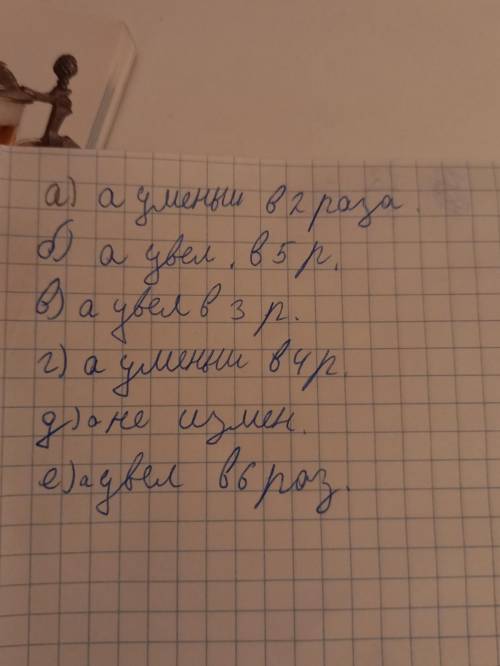 а) а уменьш в 2 раза.
б) а увел. в 5 р.
в) а увел в 3 р.
г) а уменьш в 4 р.
д) а не измен.
е) а увел в 6 раз.